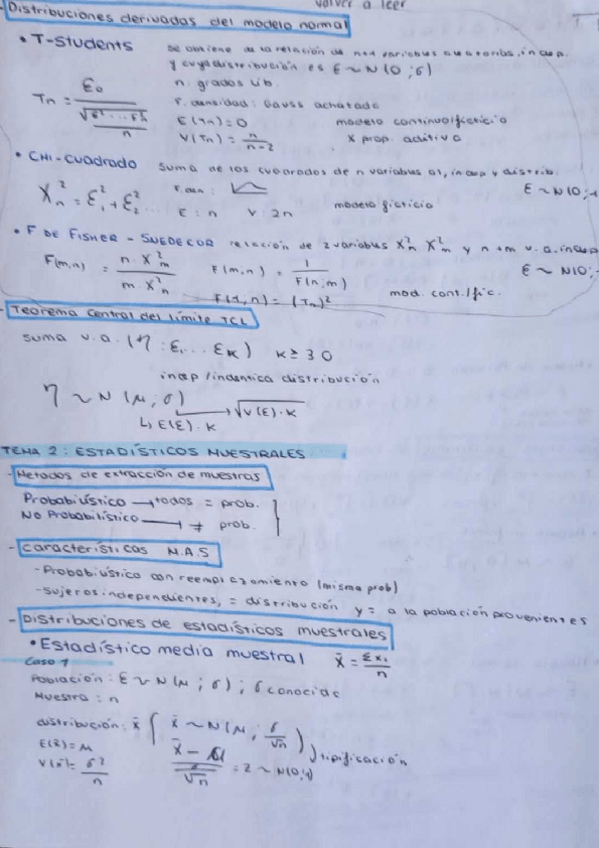 volver a leer
- Distribuciones derivadas del modelo normal
• T-Students
se obtiene de la relación de n+1 variables aleatorias, indep.
y cuya distribución es ε ~ N(0;σ)
n: grados lib.
Tn = ε0 / √(ε²...ε²n / n)
F. densidad: Gauss achatado
E(Tn)=0 modelo continuo/ficticio
V(Tn) = n/n-2 X prop. aditiva
• CHI-CUADRADO suma de los cuadrados de n variables al, indep y distrib.
ε ~ N(0;1
X²n = ε²1 + ε²2 ...
F. den:
E: n V: 2n modelo ficticio
• F DE FISHER - SNEDECOR relación de 2 variables X²n X²m y n+m v.a. indep
ε ~ N(0;
F(m,n) = n·X²m / m·X²n F(m;n) = 1 / F(n;m)
F(1,n) = (Tn)² mod. cont./fic.
- Teorema Central del Límite TCL
suma v.a. (η: ε1...εK) K≥30
indep/indentica distribución
η ~ N(μ;σ)
→ √V(ε)·K
↳ E(ε)·K
TEMA 2: ESTADÍSTICOS MUESTRALES
- Metodos de extracción de muestras
Probabilístico → todos = prob.
No Probabilístico → ≠ prob.
- Características M.A.S
- Probabilístico con reemplazamiento (misma prob)
- sujetos independientes, = distribución y = a la población provenientes
- Distribuciones de estadísticos muestrales
• Estadístico media muestral x̄ = Σxi / n
Caso 1
Población: ε ~ N(μ;σ); σ conocida
Muestra: n
distribución: x̄ ( x̄ ~ N(μ; σ/√n) ) tipificación
E(x̄)=μ
V(x̄)= σ²/n
x̄ - μ / σ/√n = Z ~ N(0;1)